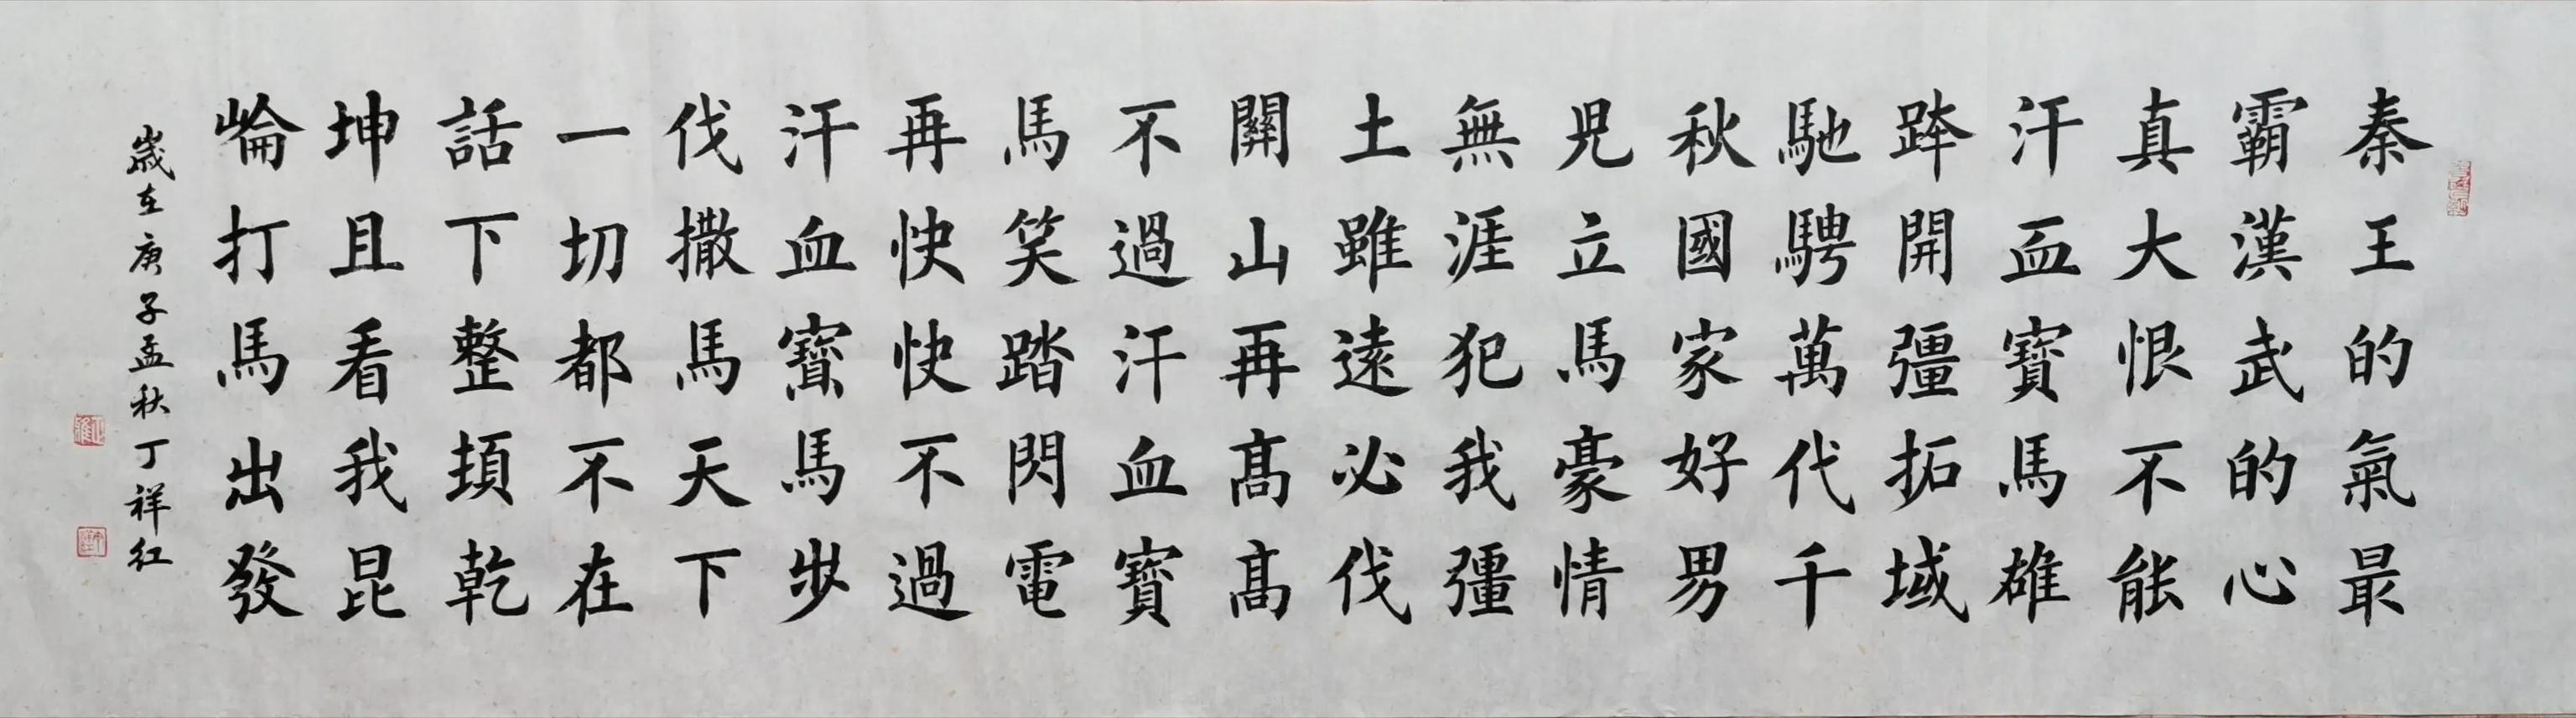 秦王的氣最
霸漢武的心
真大恨不能
汗血寶馬雄
跸開疆拓域
馳騁萬代千
秋國家好男
兒立馬豪情
無涯犯我彊
土雖遠必伐
關山再髙髙
不過汗血寶
馬笑踏閃電
再快快不過
汗血寶馬步
伐撒馬天下
一切都不在
話下整頓乾
坤且看我昆
崘打馬出發
歲在庚子孟秋丁祥红